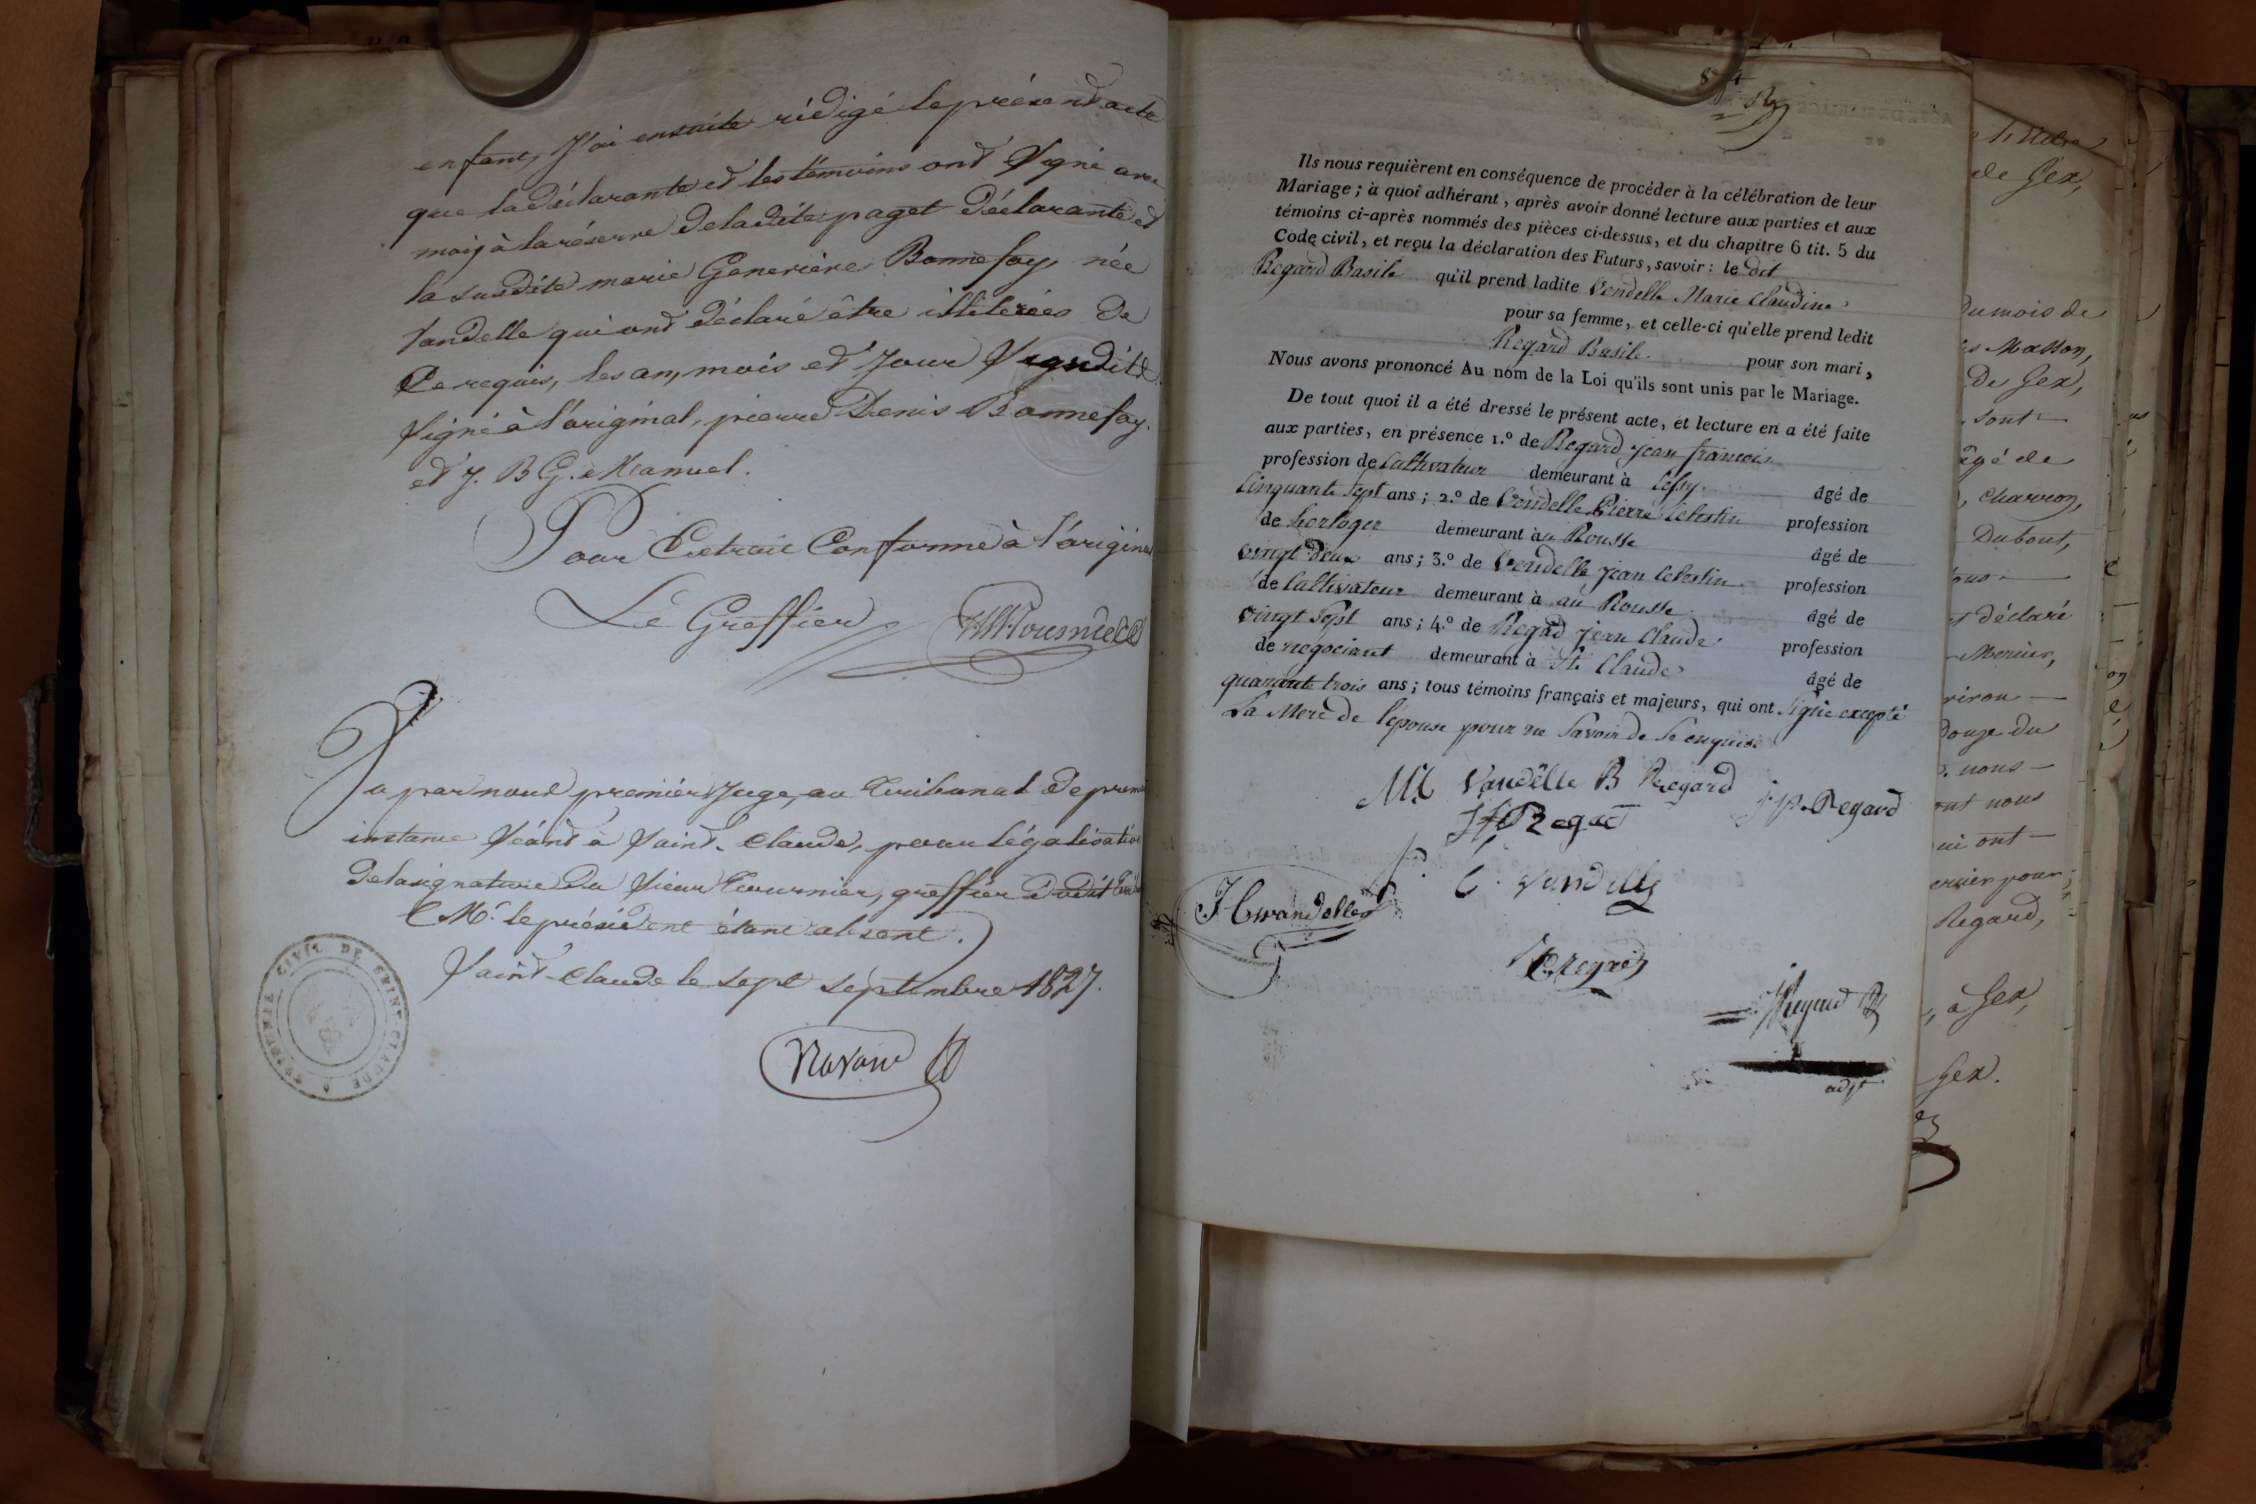 enfant, J'ai ensuite rédigé le présend acte
que la déclarante et les témoins ond Signé avec
moi, à la réserve de la dite paget déclarante et
la susdite marie Generière Bonnefoy, née
Vandelle qui ond déclaré être illiterées de
Ce requis, les an, mois et Jour Susdits.
Signé à l'original, pierre Denis Bonnefoy.
et J. B G. Manuel.
Pour Extrait Conforme à l'origina
Le Greffier
Vu par nous premier Juge, au tribunal de premi
instance Séand à Saind-Claude, pour légalisatio
de la signature du Sieur Tournier, greffier dudit
Mr. le président étant absent.
Saind-Claude le sept séptembre 1827.
TRIBUNAL CIVIL DE SAINT-CLAUDE
Ils nous requièrent en conséquence de procéder à la célébration de leur
Mariage ; à quoi adhérant, après avoir donné lecture aux parties et aux
témoins ci-après nommés des pièces ci-dessus, et du chapitre 6 tit. 5 du
Code civil, et reçu la déclaration des Futurs, savoir : le dit
Regard Basile qu'il prend ladite Vendelle Marie Claudine
pour sa femme, et celle-ci qu'elle prend ledit
Regard Basile pour son mari,
Nous avons prononcé Au nom de la Loi qu'ils sont unis par le Mariage.
De tout quoi il a été dressé le présent acte, et lecture en a été faite
aux parties, en présence 1.º de Regard jean francois
profession de Cultivateur demeurant à Cessy âgé de
Cinquante Sept ans ; 2.º de Vendelle Pierre Celestin profession
de horloger demeurant au Rousse âgé de
vingt deux ans ; 3.º de Vendelle jean Celestin profession
de Cultivateur demeurant à au Rousse âgé de
vingt Sept ans ; 4.º de Regad jean Claude profession
de negociant demeurant à St. Claude âgé de
quarante trois ans ; tous témoins français et majeurs, qui ont Signé excepté
La Mere de l'épouse pour ne Savoir de Se enquise
MC Vandelle B Regard
J.P. Regard
C. Vandelle
JC vandelle
adjt
de Gex,
du mois de
Masson,
de Gex,
sont
âgé de
, Charron,
Dubout,
déclaré
Mercier,
Douze du
, nous
ont nous
ui ont
ercier pour
Regard,
, à Gex,
Gex.